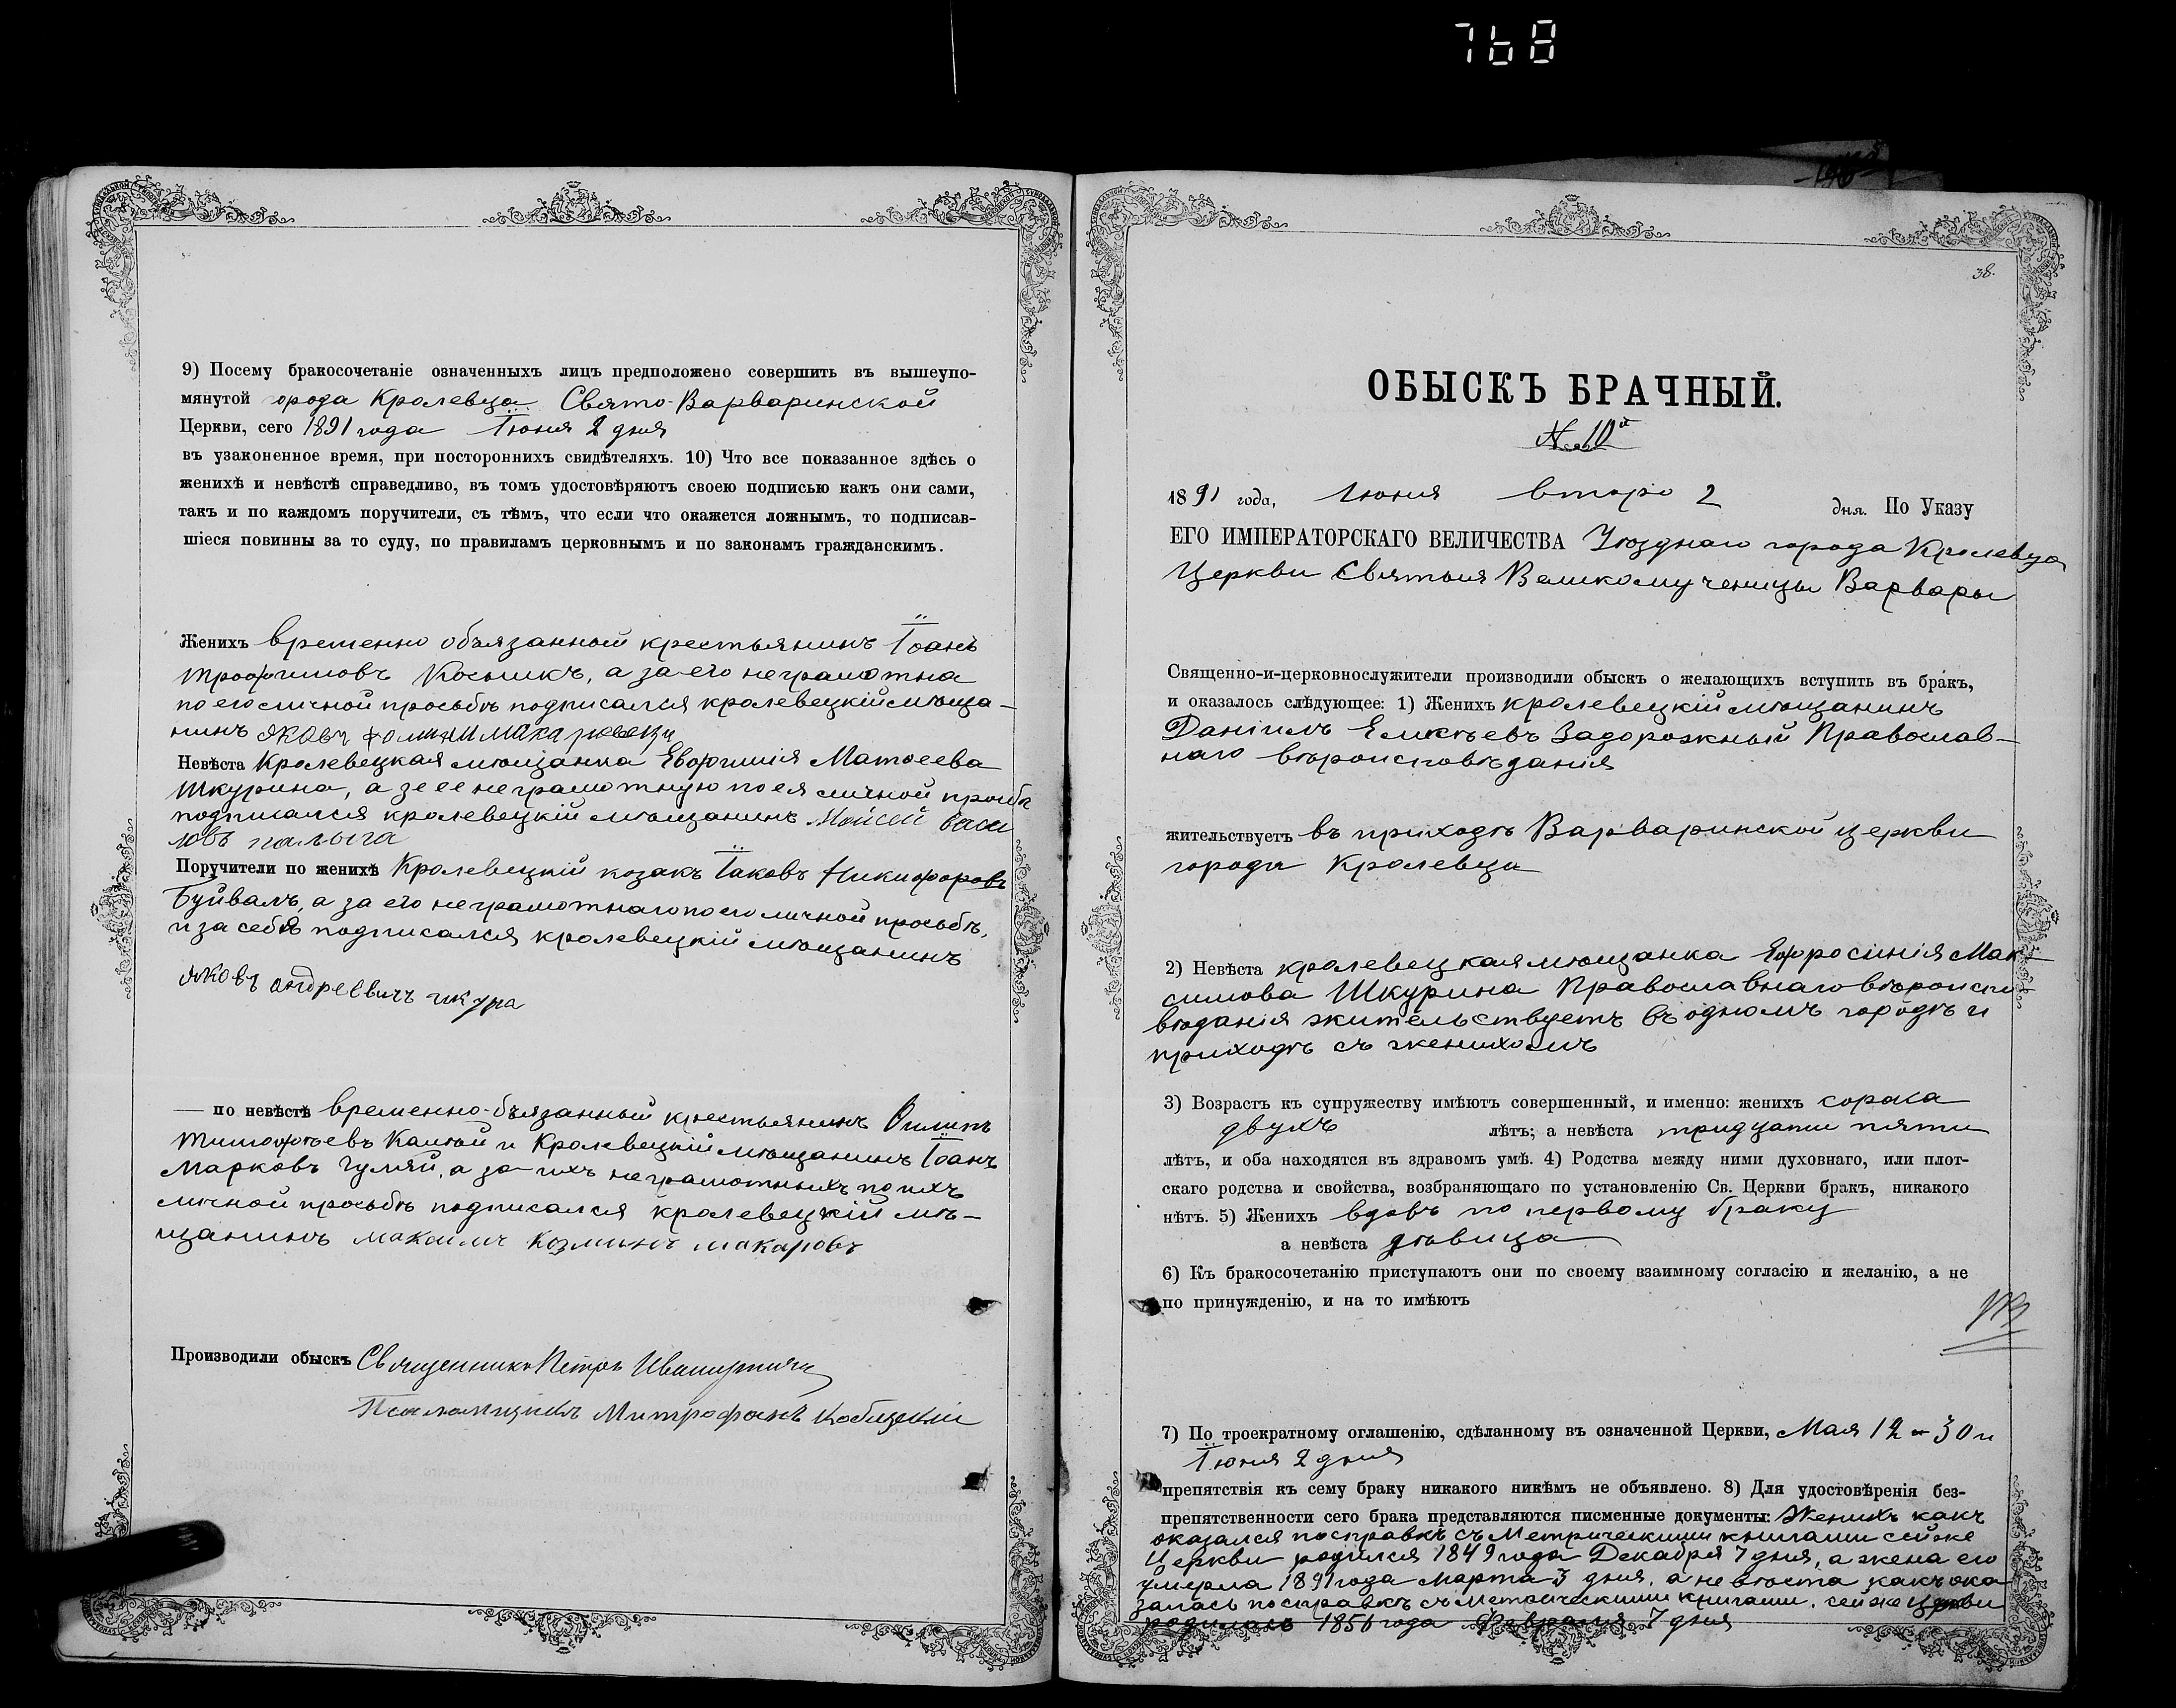 768
9) Посему бракосочетаніе означенныхъ лицъ предположено совершить въ вышеупо-
мянутой орода Кролевца Свято-Варваринской
Церкви, сего 1891 года Іюня 2 дня
въ узаконенное время, при постороннихъ свидѣтеляхъ. 10) Что все показанное здѣсь о
женихѣ и невѣстѣ справедливо, въ томъ удостовѣряютъ своею подписью какъ они сами,
такъ и по каждомъ поручители, съ тѣмъ, что если что окажется ложнымъ, то подписав-
шіеся повинны за то суду, по правиламъ церковнымъ и по законамъ гражданскимъ.
Женихъ временно обязанной крестьянинъ Іоанъ
Трофимовъ а за его неграмотна
по его личной просьбѣ подписался кролевецкій мѣща-
нинъ яковъ
Невѣста Кролевецкая мѣщанка Евфимія Матвеева
Шкурина, а за ее неграмотную по ея личной
подписался кролевецкій мѣщанинъ Мойсей васи
ловъ
Поручители по женихѣ Кролевецкій козакъ Іаковъ Никифоровъ
Буйвалъ, а за его неграмотнаго по его личной просьбѣ,
и за себя подписался кролевецкій мѣщанинъ
яковъ андреевичъ шкура
— по невѣстѣ временно-обязанный крестьянинъ
Тимофѣевъ и Кролевецкій мѣщанинъ Іоанъ
Марковъ Гуляй, а за ихъ неграмотныхъ по ихъ
личной просьбѣ подписался кролевецкій мѣ-
щанинъ козминъ макаровъ
Производили обыскъ Священникъ Петръ
Псаломщикъ Митрофанъ
38.
ОБЫСКЪ БРАЧНЫЙ.
№ 10й
1891 года, Іюня второ 2 дня. По Указу
ЕГО ИМПЕРАТОРСКАГО ВЕЛИЧЕСТВА Уѣзднаго города Кролевца
Церкви Святыя Великомученицы Варвары
Священно-и-церковнослужители производили обыскъ о желающихъ вступить въ бракъ,
и оказалось слѣдующее: 1) Женихъ кролевецкій мѣщанинъ
Даніилъ Задорожный Православ-
наго вѣроисповѣданія
жительствуетъ въ приходѣ Варваринской церкви
города Кролевца
2) Невѣста кролевецкая мѣщанка Ефросинія Мак-
симова Шкурина Православнаго вѣроиспо-
вѣданія жительствуетъ въ одномъ городѣ и
приходѣ съ женихомъ
3) Возрастъ къ супружеству имѣютъ совершенный, и именно: женихъ сорока
двухъ лѣтъ; а невѣста тридцати пяти
лѣтъ, и оба находятся въ здравомъ умѣ. 4) Родства между ними духовнаго, или плот-
скаго родства и свойства, возбраняющаго по установленію Св. Церкви бракъ, никакого
нѣтъ. 5) Женихъ вдовъ по первому браку
а невѣста дѣвица
6) Къ бракосочетанію приступаютъ они по своему взаимному согласію и желанію, а не
по принужденію, и на то имѣютъ
7) По троекратному оглашенію, сдѣланному въ означенной Церкви, Мая 12 - 30 и
Іюня 2 дня
препятствія къ сему браку никакого никѣмъ не объявлено. 8) Для удостовѣренія без-
препятственности сего брака представляются писменные документы: Женихъ какъ
оказался по справкѣ съ Метрическими книгами сей же
Церкви родился 1849 года Декабря 7 дня, а жена его
умерла 1891 года Марта 3 дня, а невѣста какъ ока
залась по справкѣ съ метрическими книгами, сей же Церкви
родилась 1856 года Февраля 7 дня